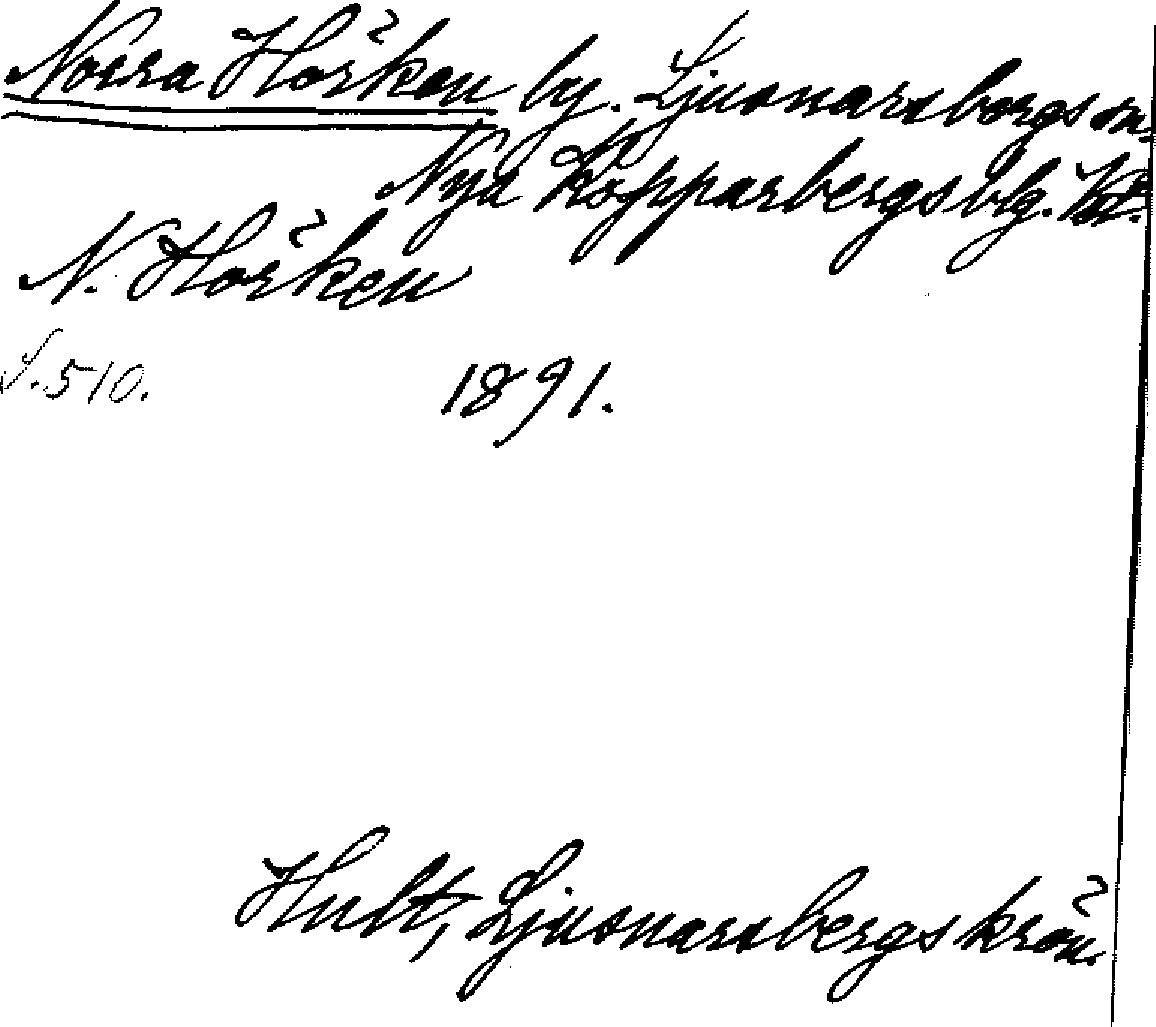 Norra Hörken by. Ljusnarsbergs sn.
Nya Kopparbergs blg.
N. Hörken
S. 510. 1891.
Hult, Ljusnarsbergs krön.